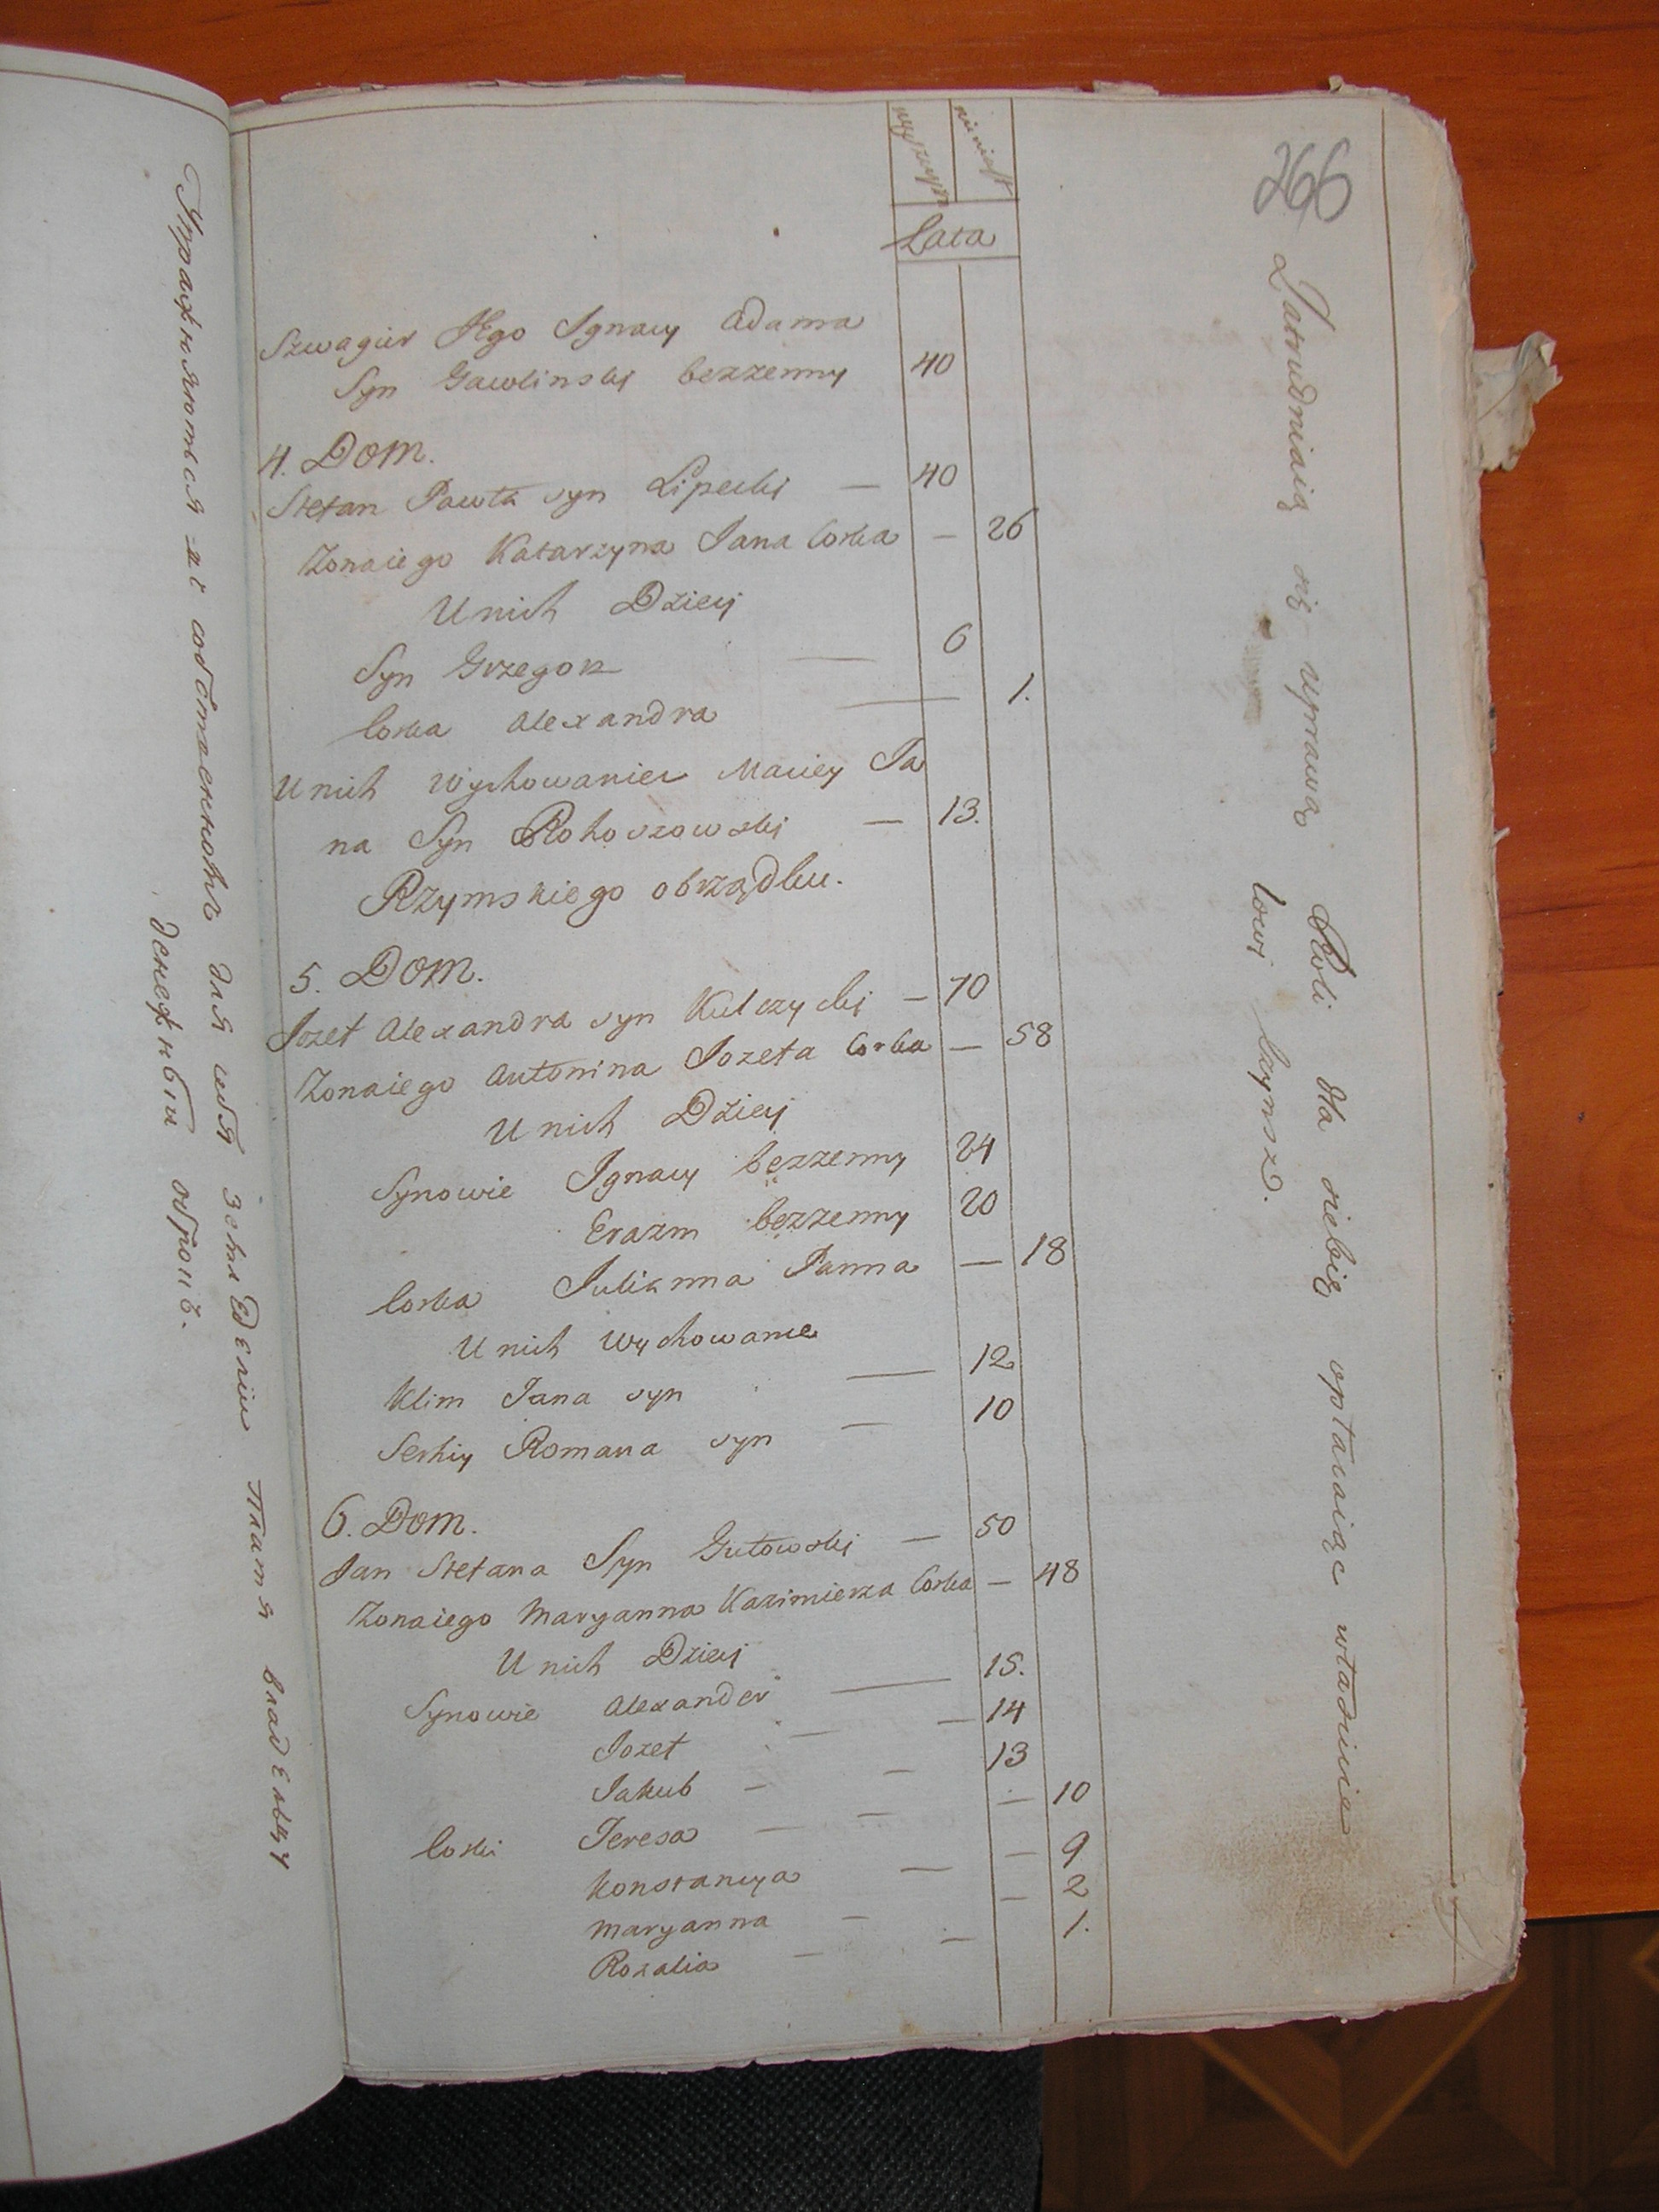 Упражняются въ собственномъ для себя земледелии платя владельцу
денежный оброкъ.
266
mężczyzn niewiast
Lata
Szwagier Jego Ignacy Adama
Syn Gawlinski bezzenny 40
4. Dom.
Stefan Pawła syn Lipecki — 40
Zonaiego Katarzyna Jana Corka — 26
U nich Dzieci
Syn Grzegorz — 6
Corka Alexandra — 1.
U nich Wychowaniec Maciey Ja
na Syn Rohoszowski — 13.
Rzymskiego obrządku.
5. Dom.
Jozef Alexandra syn Kulczycki — 70
Zonaiego Antonina Jozefa Corka — 58
U nich Dzieci
Synowie Ignacy bezzenny 24
Erazm bezzenny 20
Corka Julianna Panna — 18
U nich Wychowańce
Klim Jana syn — 12
Serhiy Romana syn — 10
6. Dom.
Jan Stefana Syn Gutowski — 50
Zonaiego Maryanna Kazimierza Corka — 48
U nich Dzieci
Synowie Alexander — 15.
Jozef — — 14
Jakub — — 13
Corki Teresa — — — 10
Konstancya — — 9
Maryanna — — 2
Rozalia — — 1.
Zatrudniaią się uprawą Roli dla siebie opłacaiąc właścicie
lowi czynsz.